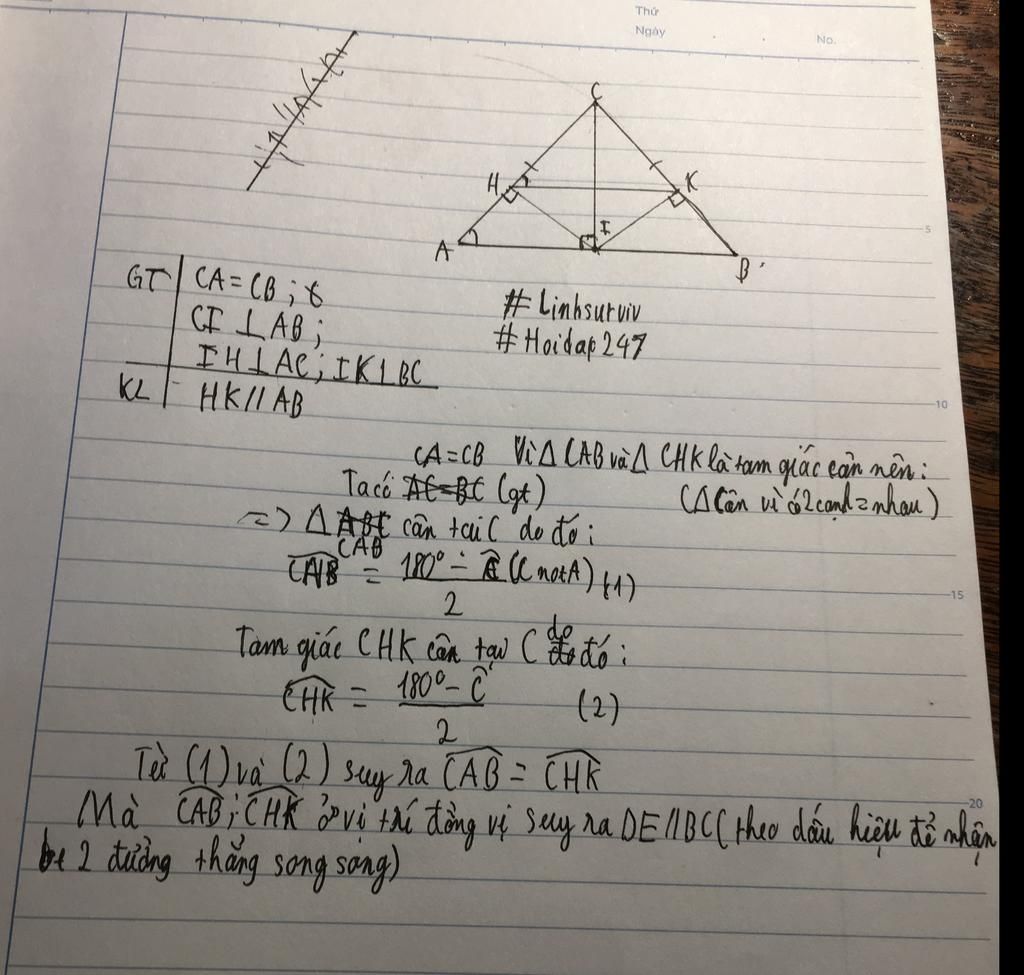 Thứ
Ngày
No.
C
H
K
I
A
B
5
GT CA = CB ;
CI ⊥ AB ;
IH ⊥ AC ; IK ⊥ BC
KL HK // AB
#Linhsurviv
#Hoidap247
10
CA = CB Vì Δ CAB và Δ CHK là tam giác cản nên :
Ta có AC = BC (gt) (Δ Cân vì có 2 cạnh = nhau)
=> Δ ABC cân tại C do đó :
CAB
CAB = 180° - C (C not A) (1)
2
15
Tam giác CHK cân tại C do đó :
CHK = 180° - C (2)
2
Từ (1) và (2) suy ra CAB = CHK
20
Mà CAB ; CHK ở vị trí đồng vị suy ra DE // BC (theo dấu hiệu để nhận
2 đường thẳng song song)